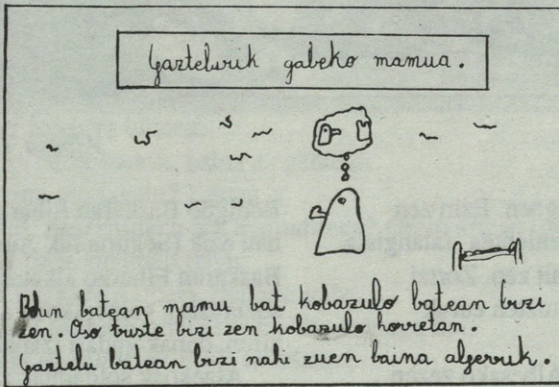 Gaztelurik gabeko mamua.
Behin batean mamu bat kobazulo batean bizi
zen. Oso triste bizi zen kobazulo horretan.
Gaztelu batean bizi nahi zuen baina alferrik.